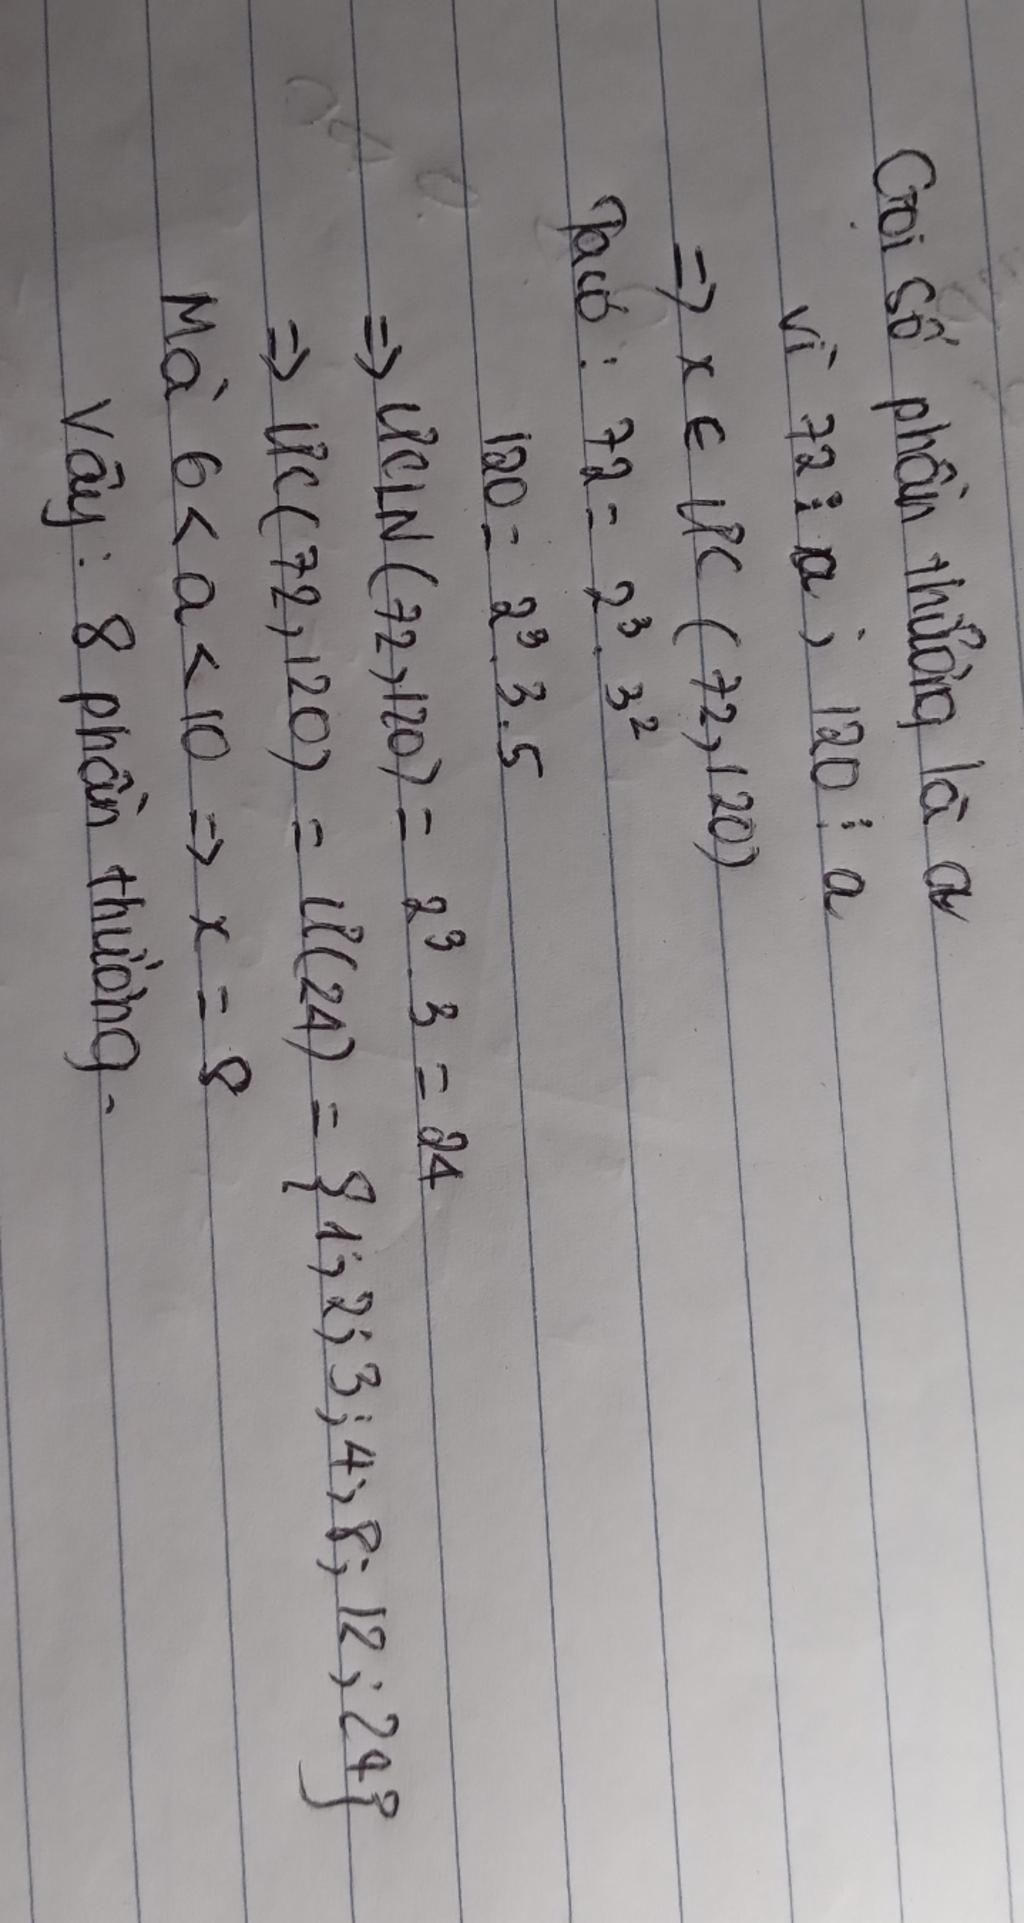 Gọi số phần thưởng là a
Vì 72 ⋮ a ; 120 ⋮ a
=> x ∈ ƯC (72,120)
Ta có : 72 = 2³. 3²
120 = 2³. 3.5
=> ƯCLN(72,120) = 2³. 3 = 24
=> ƯC(72,120) = Ư(24) = {1;2;3;4;8;12;24}
Mà 6 < a < 10 => x = 8
Vậy: 8 phần thưởng.